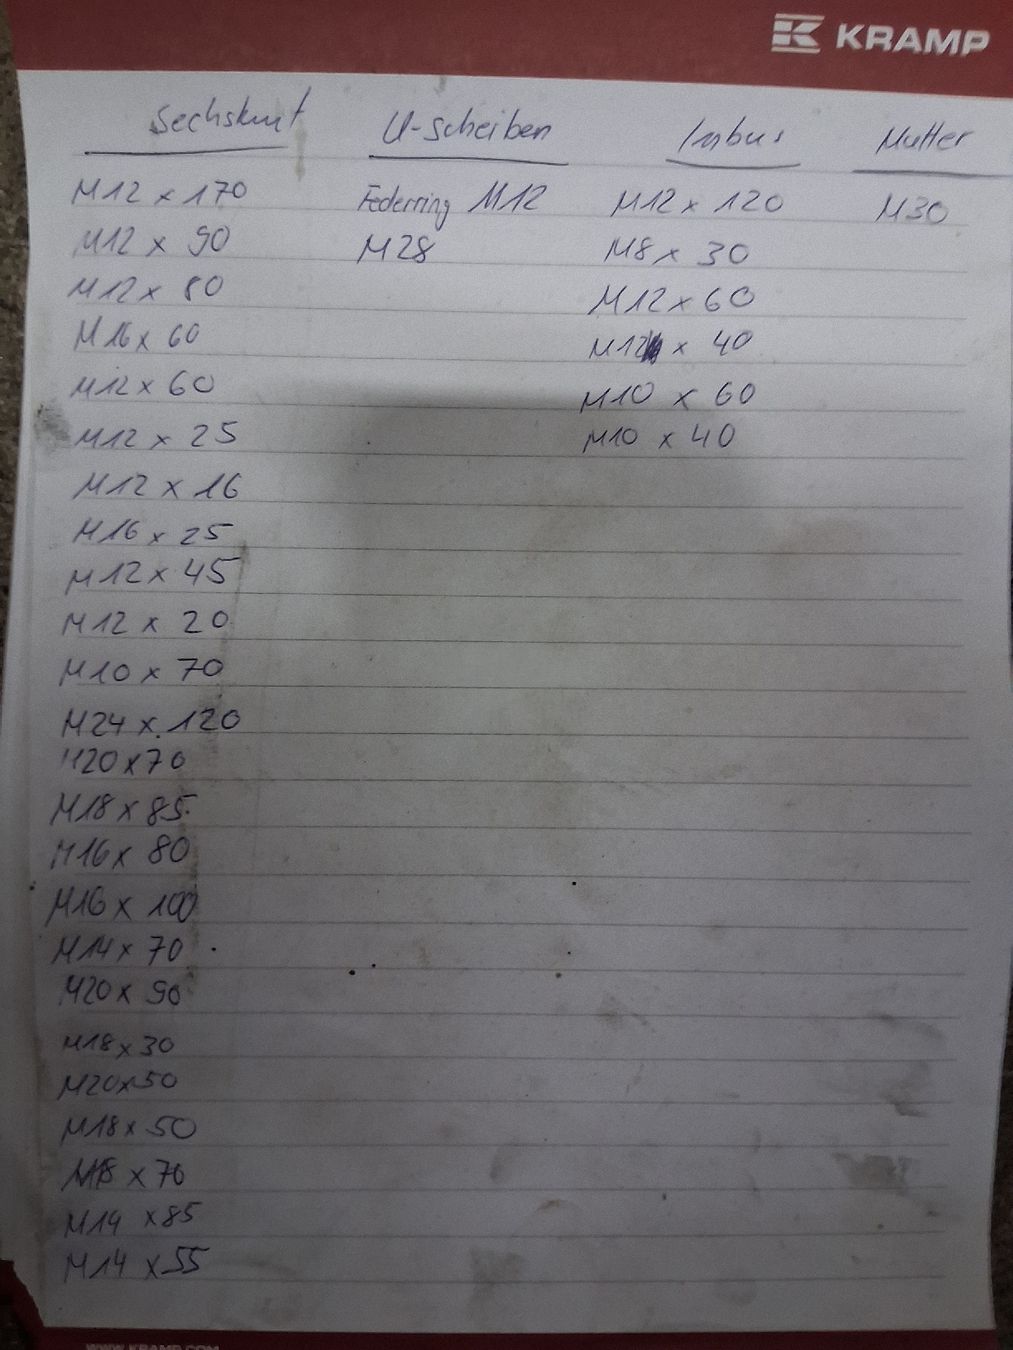 KRAMP
Sechskant U-Scheiben Inbus Mutter
M12 x 170 Federring M12 M12 x 120 M30
M12 x 90 M28 M8 x 30
M12 x 80 M12 x 60
M16 x 60 M12 x 40
M12 x 60 M10 x 60
M12 x 25 M10 x 40
M12 x 16
M16 x 25
M12 x 45
M12 x 20
M10 x 70
M24 x 120
M20 x 70
M18 x 85
M16 x 80
M16 x 100
M14 x 70
M20 x 90
M18 x 30
M20 x 50
M18 x 50
M18 x 70
M14 x 85
M14 x 55
WWW.KRAMP.COM